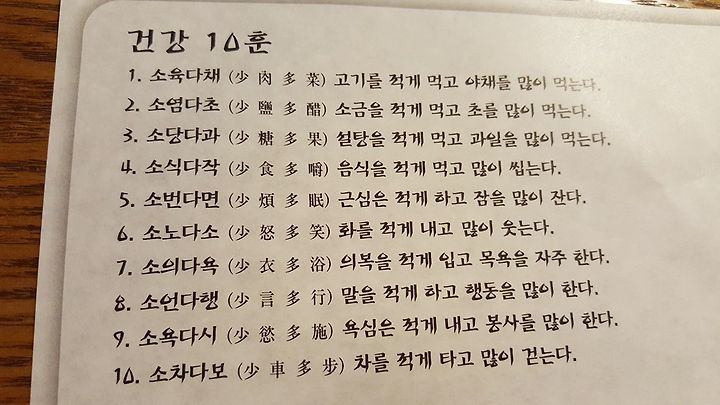 건강 10훈
1. 소육다채 (少 肉 多 菜) 고기를 적게 먹고 야채를 많이 먹는다.
2. 소염다초 (少 鹽 多 醋) 소금을 적게 먹고 초를 많이 먹는다.
3. 소당다과 (少 糖 多 果) 설탕을 적게 먹고 과일을 많이 먹는다.
4. 소식다작 (少 食 多 嚼) 음식을 적게 먹고 많이 씹는다.
5. 소번다면 (少 煩 多 眠) 근심은 적게 하고 잠을 많이 잔다.
6. 소노다소 (少 怒 多 笑) 화를 적게 내고 많이 웃는다.
7. 소의다욕 (少 衣 多 浴) 의복을 적게 입고 목욕을 자주 한다.
8. 소언다행 (少 言 多 行) 말을 적게 하고 행동을 많이 한다.
9. 소욕다시 (少 慾 多 施) 욕심은 적게 내고 봉사를 많이 한다.
10. 소차다보 (少 車 多 步) 차를 적게 타고 많이 걷는다.